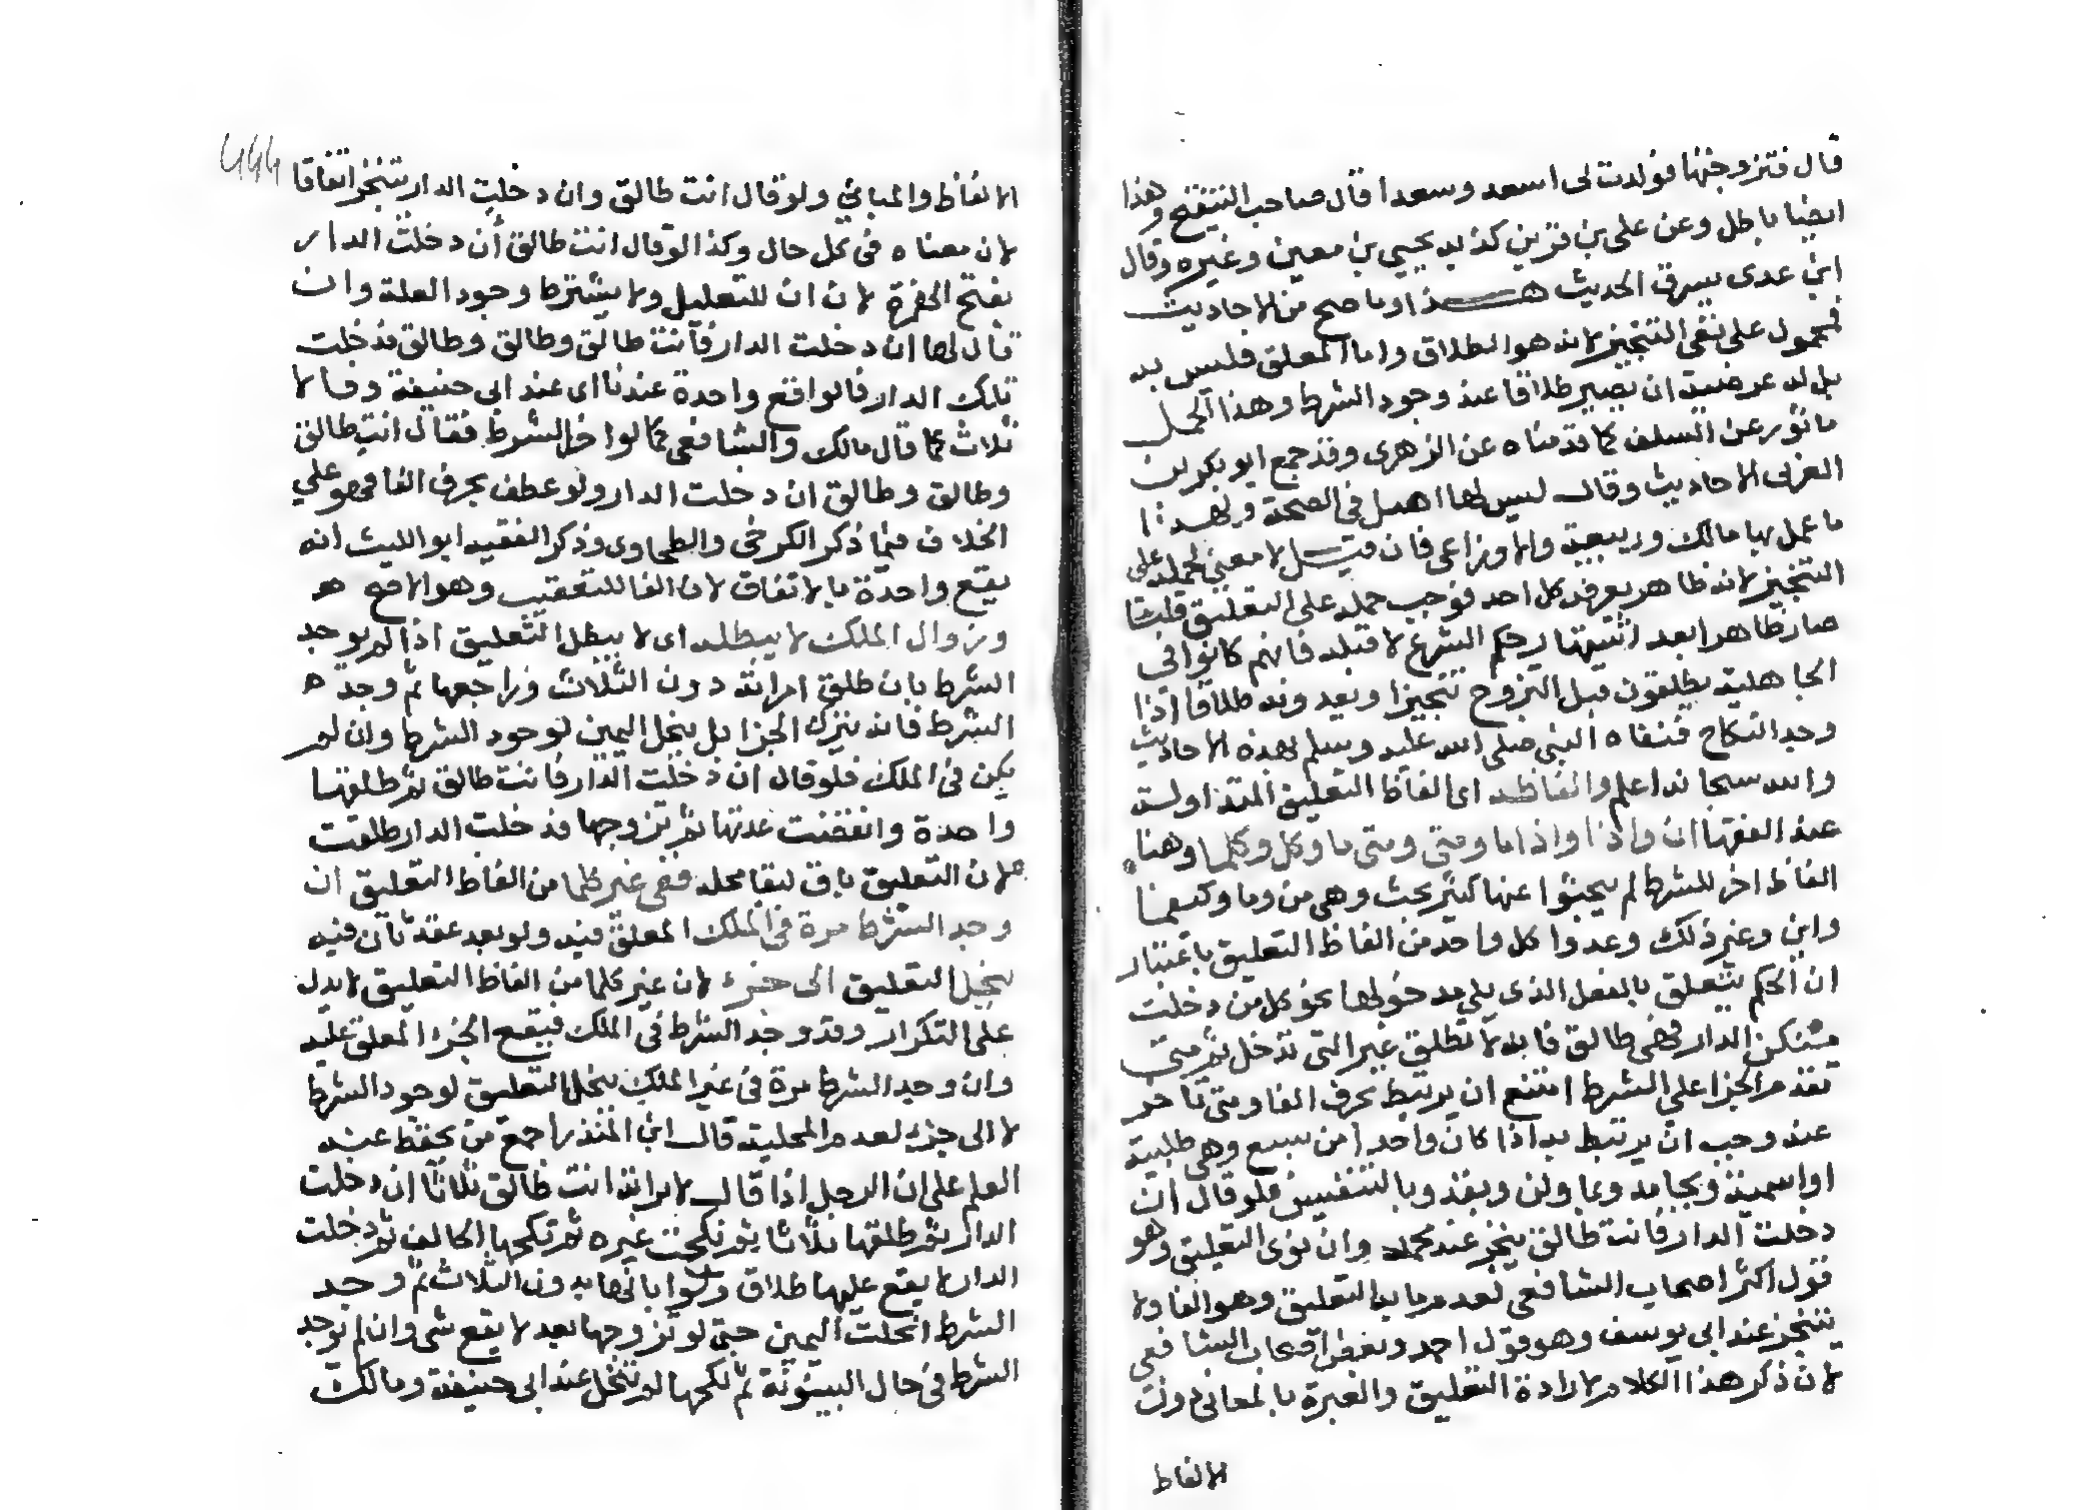 قال فتزوجتها فولدت لى اسعد وسعدا قال صاحب التنقيح وهذا
ايضا باطل وعن على بن قرين كذبه يحيي بن معين وغيره وقال
ابن عدى يسرق الحديث هـــذا وما صح من الاحاديث
فمحمول على نفى التنجيز لانه هو الطلاق واما المعلق فليس به
بل له عرضية ان يصير طلاقا عند وجود الشرط وهذا الحمل
ماثور عن السلف كما قدمناه عن الزهرى وقد جمع ابو بكر بن
العربى الاحاديث وقال ليس لها اصل فى الصحة ولهذا
ما عمل بها مالك وربيعة والاوزاعى فان قيــل لا معنى لحمله على
التنجيز لانه ظاهر يعرفه كل احد فوجب حمله على التعليق قلنا
صار ظاهرا بعد اشتهار حكم الشرع لا قبله فانهم كانوا فى
الجاهلية يطلقون قبل التزوج تنجيزا ويعدونه طلاقا اذا
وجد النكاح فنفاه النبى صلى الله عليه وسلم بهذه الاحاديث
والله سبحانه اعلم والفاظه اى الفاظ التعليق المتداولة
عند الفقها ان واذا واذاما ومتى ومتى ما وكل وكلما وهنا
الفاظ اخر للشرط لم يبحثوا عنها كثير بحث وهى من وما وكيفما
واين وغير ذلك وعدوا كل واحد من الفاظ التعليق باعتبار
ان الحكم يتعلق بالفعل الذى يلى مدخولها نحو كل من دخلت
منكن الدار فهى طالق فانه لا تطلق غير التى تدخل ثم متى
تقدم الجزا على الشرط امتنع ان يرتبط بحرف الفا ومتى تاخر
عنه وجب ان يرتبط به اذا كان واحدا من سبع وهى طلبية
او اسمية وبجامد وبما ولن وبقد وبالتنفيس فلو قال ان
دخلت الدار فانت طالق ينجز عند محمد وان نوى التعليق وهو
قول اكثر اصحاب الشافعى لعدم ما به التعليق وهو الفا ولا
يتنجز عند ابى يوسف وهو قول احمد وبعض اصحاب الشافعى
لان ذكر هذا الكلام لارادة التعليق والعبرة بالمعانى دون
الالفاظ
الالفاظ والمبانى ولو قال انت طالق وان دخلت الدار يتنجز اتفاقا
لان معناه فى كل حال وكذا لو قال انت طالق أن دخلت الدار
بفتح الهمزة لان ان للتعليل ولا يشترط وجود العلة وان
قال لها ان دخلت الدار فانت طالق وطالق وطالق فدخلت
تلك الدار فالواقع واحدة عندنا اى عند ابى حنيفة وقالا
ثلاث كما قال مالك والشافعى كما لو اخر الشرط فقال انت طالق
وطالق وطالق ان دخلت الدار ولو عطف بحرف الفا فهو على
الخلاف فيما ذكر الكرخى والطحاوى وذكر الفقيه ابو الليث انه
يقع واحدة بالاتفاق لان الفا للتعقيب وهو الاصح هـ
وزوال الملك لا يبطله اى لا يبطل التعليق اذا لم يوجد
الشرط بان طلق امراته دون الثلاث وراجعها ثم وجد هـ
الشرط فانه ينزل الجزا بل ينحل اليمين لوجود الشرط وان لم
يكن فى الملك فلو قال ان دخلت الدار فانت طالق ثم طلقها
واحدة وانقضت عدتها ثم تزوجها فدخلت الدار طلقت
لان التعليق باق لبقا محله ففى غير كلما من الفاظ التعليق ان
وجد الشرط مرة فى الملك المعلق فيه ولو بعد عقد ثان فيه
ينحل التعليق الى جزء لان غير كلما من الفاظ التعليق لا يدل
على التكرار وقد وجد الشرط فى الملك فيقع الجزا المعلق عليه
وان وجد الشرط مرة فى غير الملك ينحل التعليق لوجود الشرط
لا الى جزء لعدم المحلية قال ابن المنذر اجمع من يحفظ عنه
العلم على ان الرجل اذا قال لامراته انت طالق ثلاثا ان دخلت
الدار ثم طلقها ثلاثا ثم نكحت غيره ثم نكحها الحالف ثم دخلت
الدار لا يقع عليها طلاق ولو ابانها بدون الثلاث ثم وجد
الشرط انحلت اليمين حتى لو تزوجها بعد لا يقع شى وان لم يوجد
الشرط فى حال البينونة ثم نكحها لم تنحل عند ابى حنيفة ومالك